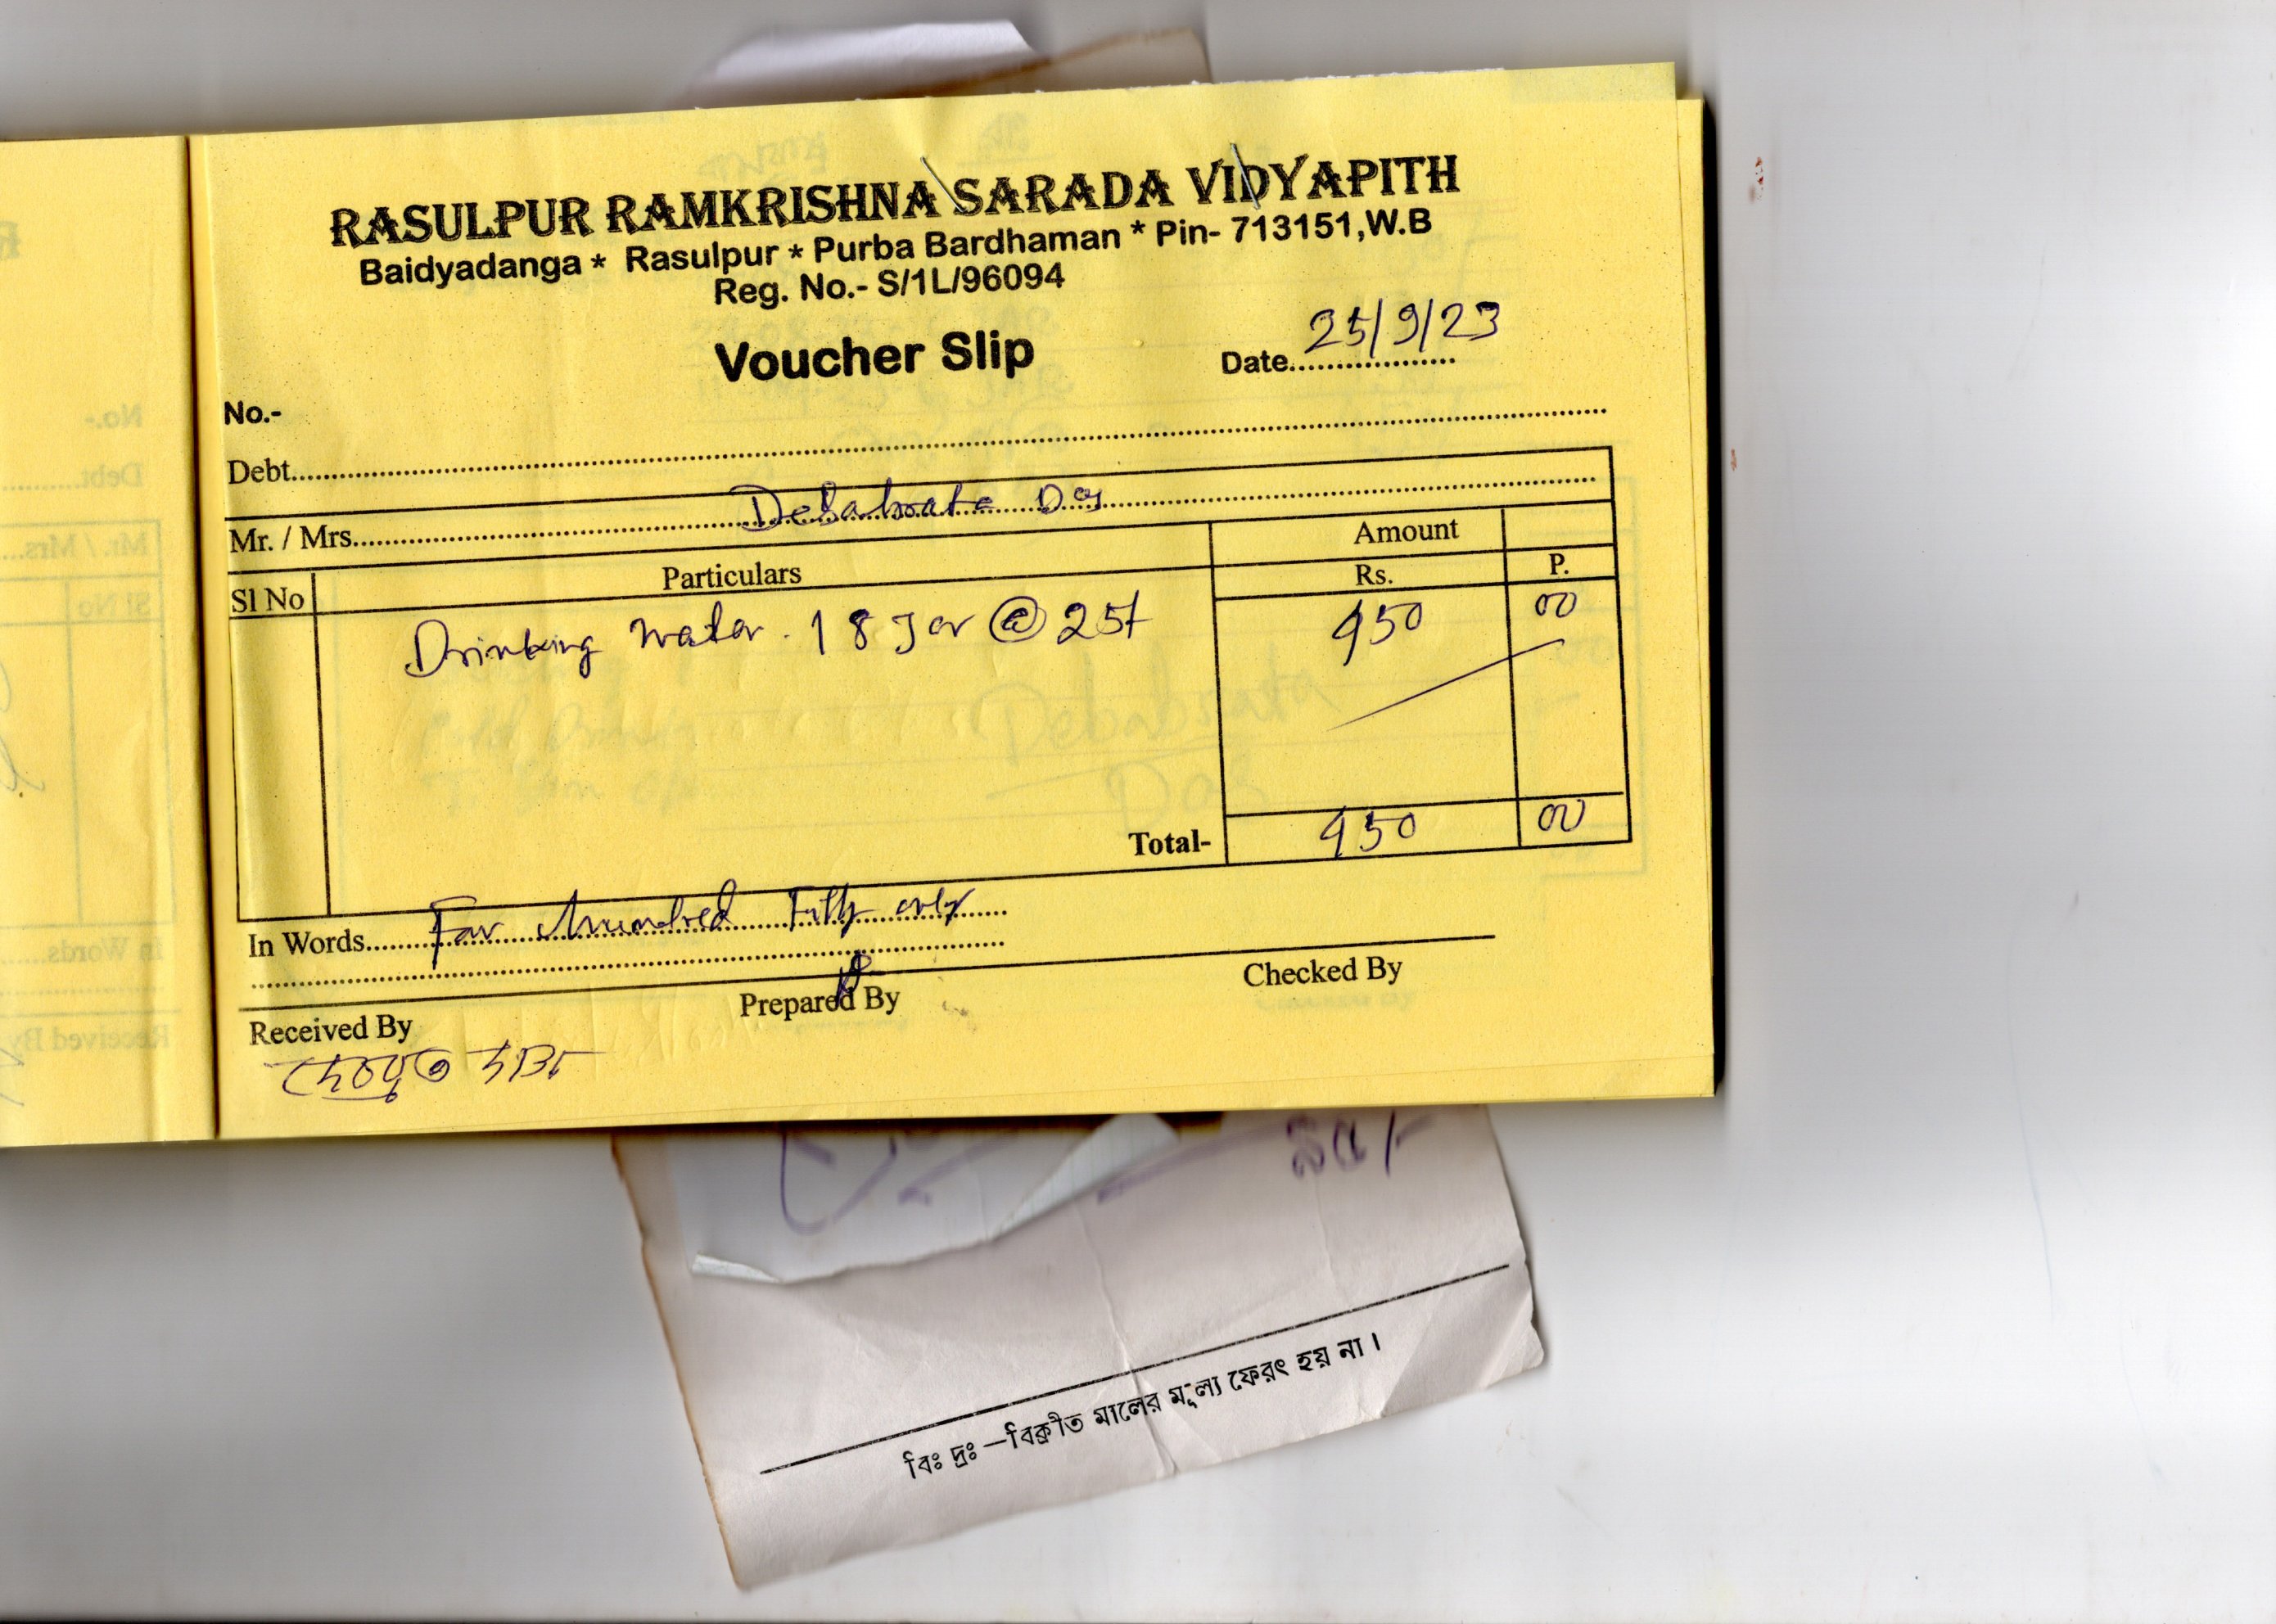 RASULPUR RAMKRISHNA SARADA VIDYAPITH
Baidyadanga * Rasulpur * Purba Bardhaman * Pin- 713151,W.B
Reg. No.- S/1L/96094
Voucher Slip
Date 25/9/23
No.-
Debt
Mr. / Mrs. Debabrata Das
Sl No Particulars Amount
Rs. P.
Drinking water. 18 Jar @ 25/- 450 00
Total- 450 00
In Words Four Hundred Fifty only
Received By Prepared By Checked By
বিঃ দ্রঃ —বিক্রীত মালের মূল্য ফেরৎ হয় না।